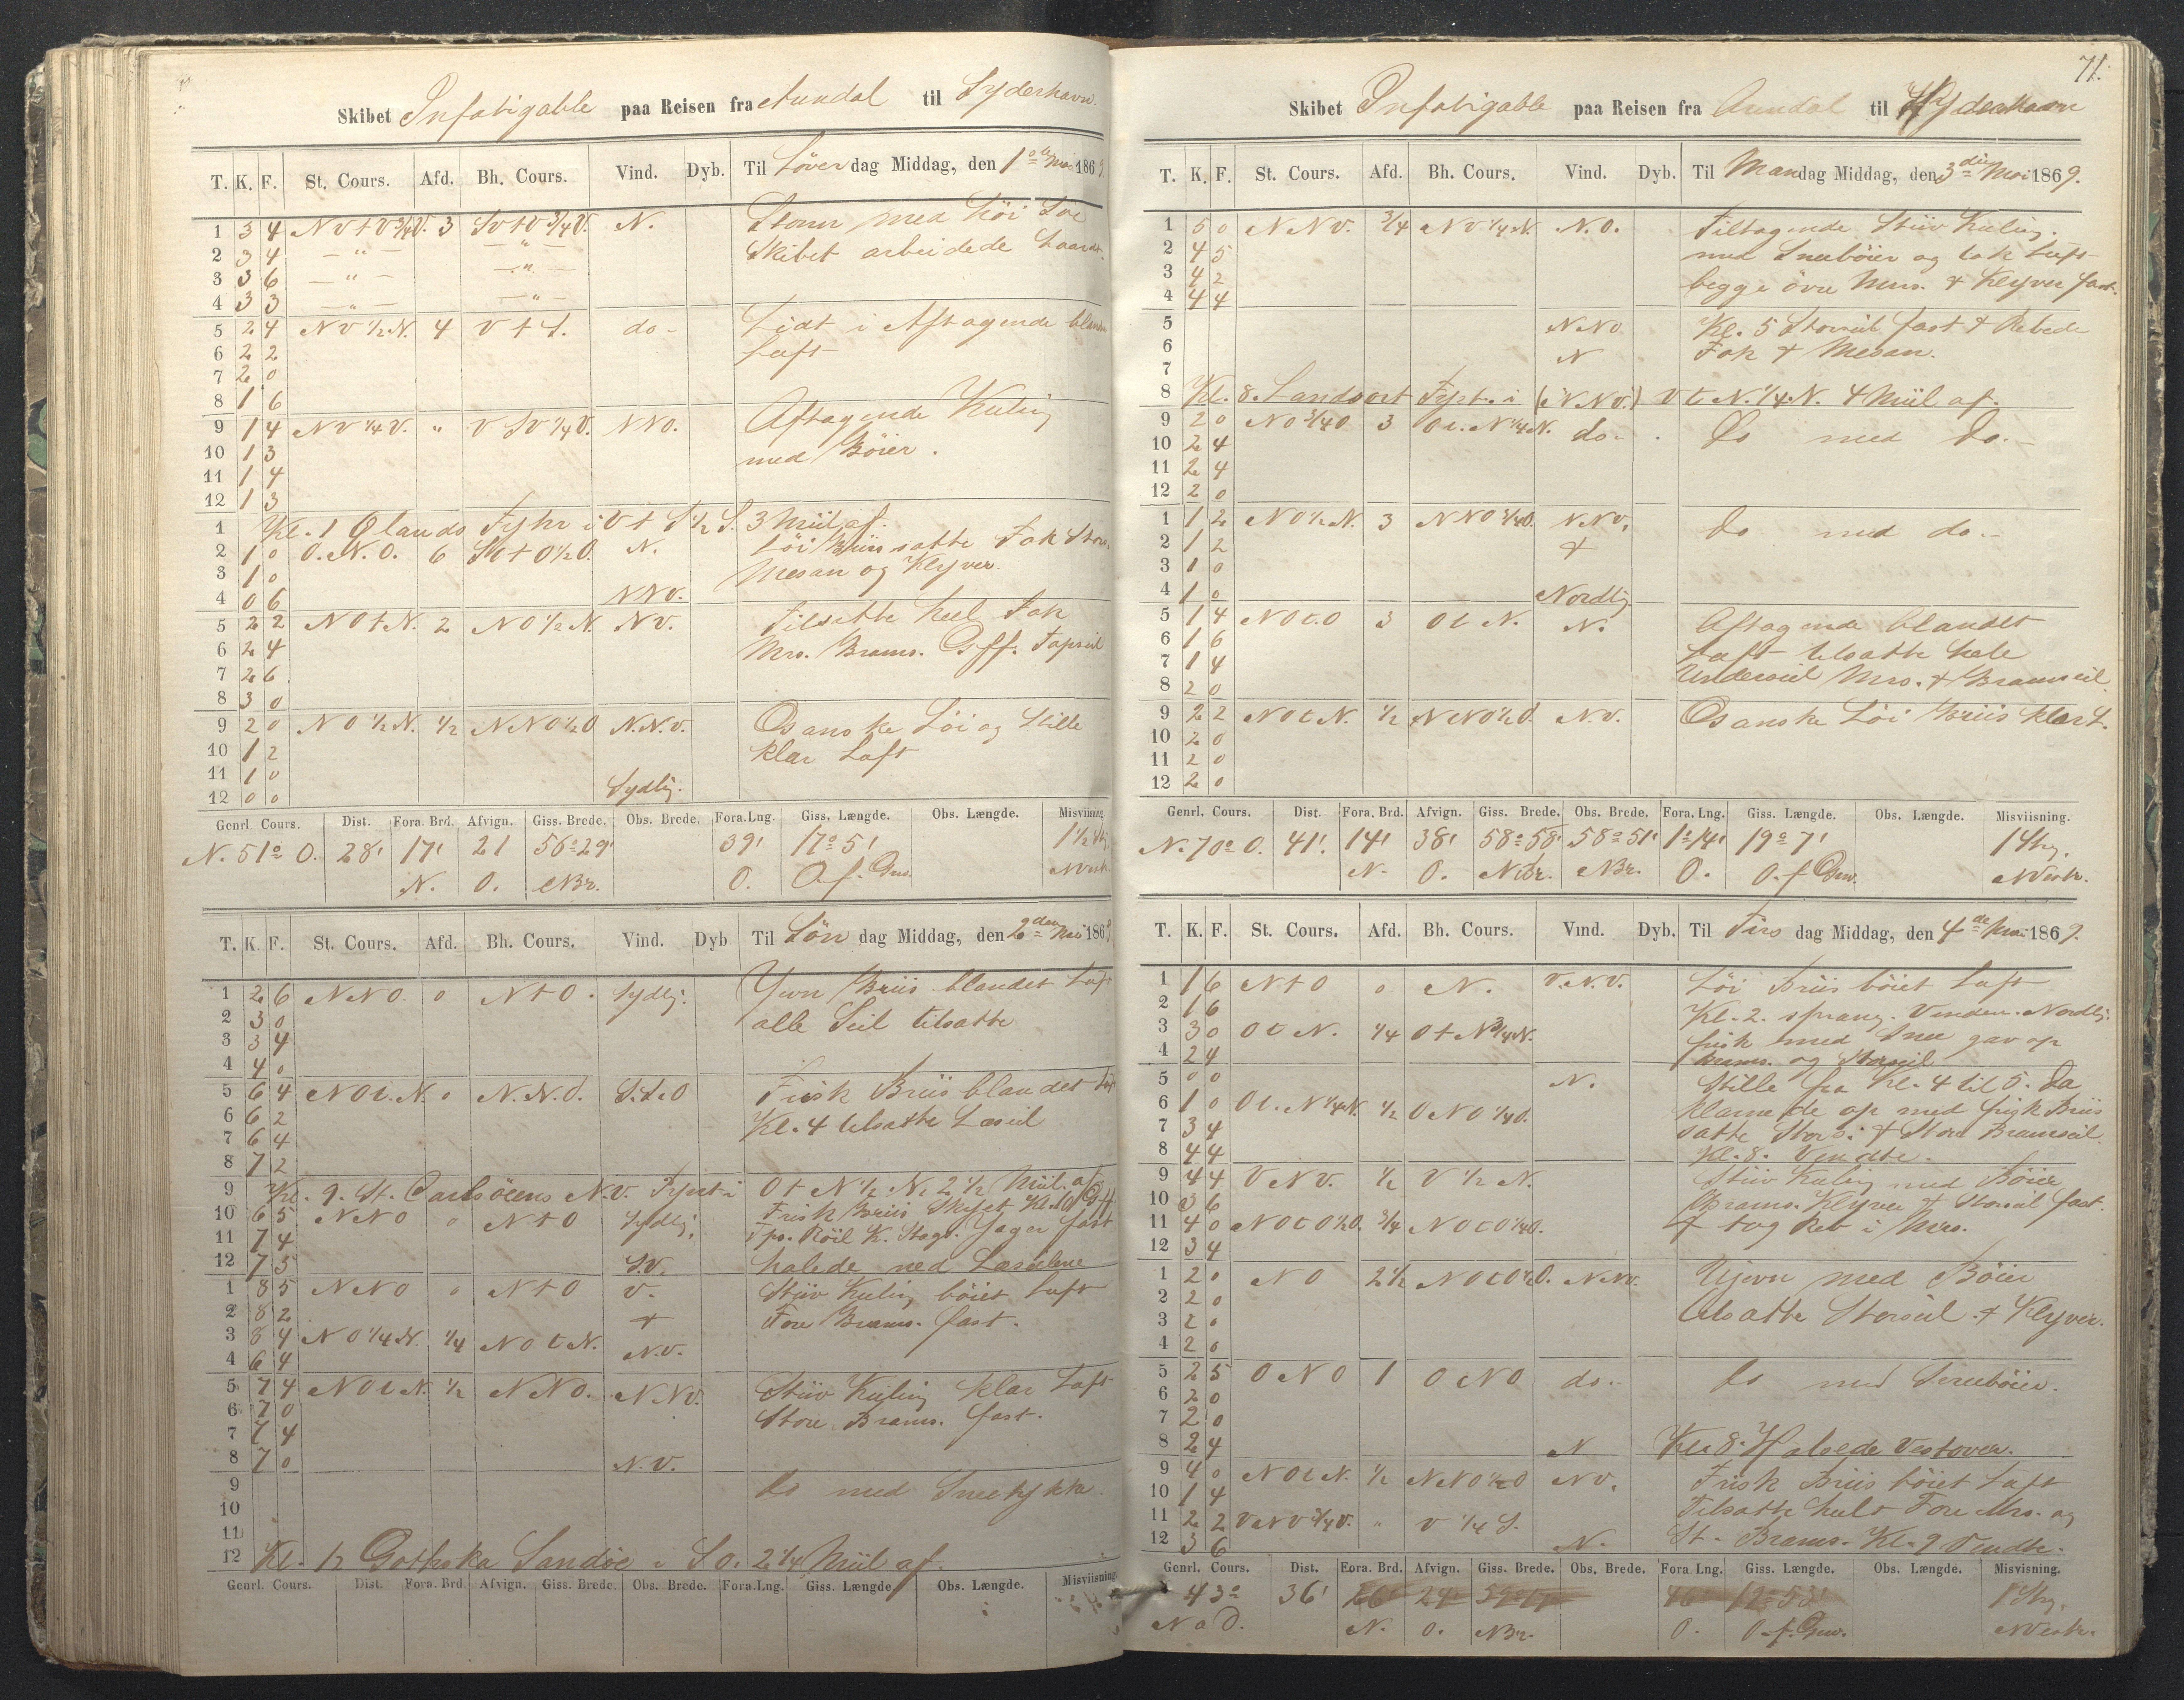 Skibet Infatigable paa Reisen fra Arendal til Syderhavn.
T. K. F. St. Cours. Afd. Bh. Cours. Vind. Dyb. Til Löver dag Middag, den 1ste Mai 1869
1 3 4 NVtV3/4V. 3 SvtV3/4V. N. Storm med höi Söe
2 3 4 —"— —"— Skibet arbeidede haardt
3 3 6 —"— —"—
4 3 3 —"— —"—
5 2 4 NV1/2N. 4 VtS. do- Lidt i Aftagende blandet
6 2 2 Luft
7 2 0
8 1 6
9 1 4 NV1/4V. " VSV1/4V. NNO. Aftagende Kuling
10 1 3 med Böier.
11 1 4
12 1 3
1 Kl. 1 Ölands Fyhr i VtS1/2S. 3 Miil af.
2 1 0 O.N.O. 6 SOtO1/2O. N. Löi Briis satte Fok Stors.
3 1 0 Mesan og Klyver.
4 0 6 NNV.
5 2 2 NOtN. 2 NO1/2N. NV. Tilsatte heel Fok
6 2 4 Mrs. Brams. Gff. Topseil
7 2 6
8 3 0
9 2 0 NO1/2N. 1/2 NNO1/2O N.N.V. Osanske Löi og Stille
10 1 2 klar Luft
11 1 0
12 0 0 Sydlig.
Genrl. Cours. Dist. Fora. Brd. Afvign. Giss. Brede. Obs. Brede. Fora. Lng. Giss. Længde. Obs. Længde. Misviisning
N. 51° O. 28' 17' 21 56°29' 39' 17°51' 1 1/2 Str.
N. O. NBr. O. O. f. Grw. NVestr.
T. K. F. St. Cours. Afd. Bh. Cours. Vind. Dyb Til Sön dag Middag, den 2den Mai 1869
1 2 6 NNO. 0 NtO. Sydlig. Jevn Briis blandet Luft
2 3 0 alle Seil tilsatte
3 3 4
4 4 0
5 6 4 NOt.N. 0 N.N.O. S.S.O Frisk Briis blandet Luft
6 6 2 Kl. 4 tilsatte Læseil
7 6 4
8 7 2
9 Kl. 9. St. Carlsöens N.V. Fyrt i OtN1/2N. 2 1/2 Miil. af
10 6 5 NNO 0 NtO Sydlig. Frisk Briis Skyet Kl. 10 Gff.
11 7 4 Tps. Röil K. Stags. Jager fast
12 7 5 S.V. halede ned Læseilene
1 8 5 NNO 0 NtO V. Stiiv Kuling böiet Luft
2 8 2 + Fore Brams. fast.
3 8 4 NO1/4N. 1/4 NOtN.
4 6 4 N.V.
5 7 4 NOtN. 1/2 NNO. N.NV. Stiiv Kuling klar Luft
6 7 0 Store Brams. fast.
7 7 4
8 7 0 N.V.
9 Do med Sneetykke.
10
11
12 Kl. 12 Gothska Sandöe i SO. 2 1/4 Miil af.
Genrl. Cours. Dist. Fora. Brd. Afvign. Giss. Brede. Obs. Brede. Fora. Lng. Giss. Længde Obs. Længde. Misviisning
71.
Skibet Infatigable paa Reisen fra Arendal til Syderhavn
T. K. F. St. Cours. Afd. Bh. Cours. Vind. Dyb. Til Mandag Middag, den 3die Mai 1869.
1 5 0 NNV. 3/4 NV1/4N. N.O. Tiltagende Stiiv Kuling.
2 4 5 med Sneeböier og tok Luft
3 4 2 begge övre Mrs. + Klyver fast.
4 4 4
5 NNO Kl. 5 Storseil fast + Rebede
6 N Fok + Mesan.
7
8 Kl. 8. Landsort Fyrt. i (i NV.) VtN.1/4.N. 4 Miil af.
9 2 0 NO3/4O 3 Ot.N1/4N. do.. Do med Do.-
10 2 4
11 2 4
12 2 0
1 1 2 NO1/2N. 3 NNO3/4O. NNV. Do med do.-
2 1 2 +
3 1 0
4 1 0 Nordlig
5 1 4 NOt.O 3 OtN. N. Aftagende blandet
6 1 6 Luft tilsatte hele
7 1 4 Underseil Mrs. + Bramseil.
8 2 0
9 2 2 NOtN. 1/2 NNO1/2O. N.V. Osanske Löi Briis klar L.
10 2 0
11 2 0
12 2 0
Genrl. Cours. Dist. Fora. Brd. Afvign. Giss. Brede. Obs. Brede. Fora. Lng. Giss. Længde. Obs. Længde. Misviisning
N. 70° O. 41'. 14' 38' 58°58' 58°51' 1°14' 19°7' 1 Str.
N. O. NBr. NBr. O. O. f Grw. NVestr.
T. K. F. St. Cours. Afd. Bh. Cours. Vind. Dyb. Til Tirs dag Middag, den 4de Mai 1869.
1 1 6 NtO 0 N. V.N.V. Löi Briis böiet Luft
2 1 6 Kl. 2. sprang Vinden Nordlig.
3 3 0 OtN. 1/4 OtN3/4N. frisk med Snee gav op
4 2 4 Brams. og Storseil
5 0 0 N. Stille fra Kl. 4 til 5. Da
6 1 0 Ot.N1/4N. 1/2 ONO1/4O. klarnede op med frisk Briis
7 3 4 satte Stors. + Store Bramseil.
8 4 4 Kl. 8. Vendte.
9 4 4 VNV. 1/2 V1/2N. Stiiv Kuling med Böier
10 3 6 Brams. Klyver + Storseil fast.
11 4 0 NOtO1/2O. 3/4 NOtO1/4O. + tog Reb i Mrs.
12 3 4
1 2 0 NO 2 1/2 NOtO1/2O. N.NV. Ujevn med Böier
2 2 0 tilsatte Storseil + Klyver.
3 2 0
4 2 0
5 2 5 ONO 1 ONO do.. Do med Sneeböier.
6 2 0
7 2 0
8 2 4 N Kl. 8. Halsede Vestover.
9 4 0 NOtN. 1/2 NNO1/2O NV. Frisk Briis böiet Luft
10 1 4 Tilsatte heelt Fore Mrs. og
11 2 2 VNV3/4V. " V1/4S. St. Brams. Kl. 9 Vendte.
12 3 6 N.
Genrl. Cours. Dist. Fora. Brd. Afvign. Giss. Brede. Obs. Brede. Fora Lng. Giss. Længde. Obs. Længde. Misvisning.
43° 36' 26' 24' 59°17' 46' 19°53' 1 Str.
N a O. N. O. NBr. O. O. f. Grw. NVestr.